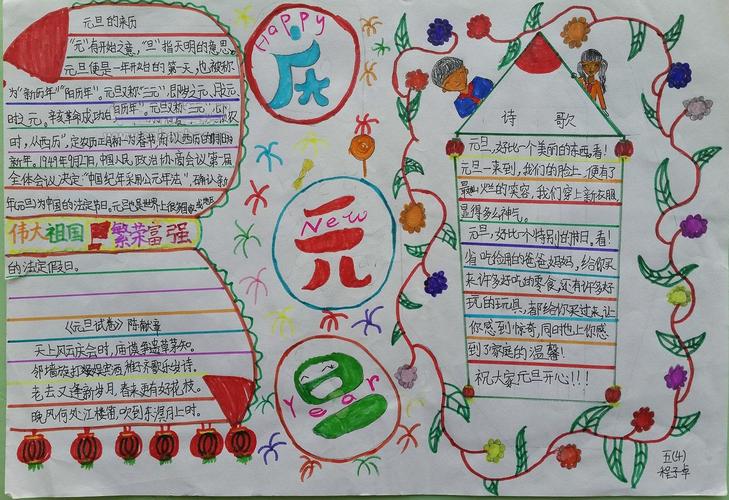 元旦的来历
"元"有开始之意，"旦"指天明的意思。
元旦便是一年开始的第一天，也被称
为"新历年""阳历年"。元旦又称"三元"，即岁之元、月之元、
时之元。辛亥革命成功
时，从西历"，定农历正月初一为春节，而以西历的1月1日为
新年。1949年9月27日，中国人民政治协商会议第一届
全体会议决定"中国纪年采用公元年法"，确认新
年(元旦)为中国的法定节日。元旦也是世界上很多国家或地区
伟大祖国 繁荣富强
的法定假日。
《元旦试卷》 陈献章
天上风云庆会时，庙谟争遣草茅知。
邻墙旋打娱宾酒，稚子齐歌乐岁诗。
老去又逢新岁月，春来更有好花枝。
晚风何处江楼笛，吹到东溟月上时。
Happy
庆
New
元
Year
旦
诗 歌
元旦，好比一个美丽的东西，看！
元旦一来到，我们的脸上，便有了
灿烂的笑容，我们穿上新衣服，
显得多么神气。
元旦，好比个特别的节日，看！
省吃俭用的爸爸妈妈，给你买
来许多好吃的零食，还有许多好
玩的玩具，都给你买过来，让
你感到惊奇，同时也让你感
到了家庭的温馨！
祝大家元旦开心！！！
五(4)
程子卓